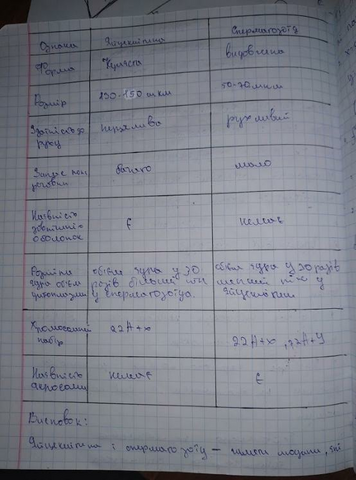 Ознака Яйцеклітина Сперматозоїд
Форма Куляста видовжена
Розмір 130-150 мкм 50-70 мкм
Здатність до руху нерухлива рухливий
Запас пож. речовин багато мало
Наявність
оболонок Є немає
Розмір ядра
цитоплазми
об'єм ядра у
разів більший ніж
у сперматозоїда.
об'єм ядра у разів
менший ніж у
яйцеклітини
Хромосомний
набір 22А+х 22А+х, 22А+У
Наявність
акросоми немає Є
Висновок:
Яйцеклітина і сперматозоїд — гамети людини, які